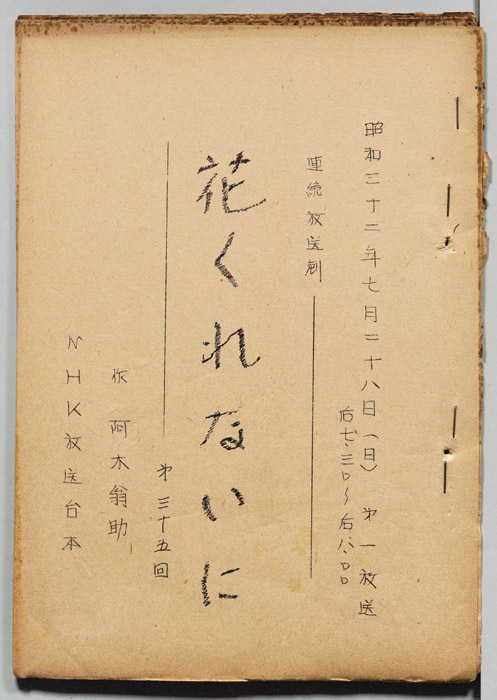 昭和三十二年七月二十八日(日) 第一放送
后七、三〇〜后八、〇〇
連続放送劇
花くれないに
第三十五回
作 阿木翁助
NHK放送台本